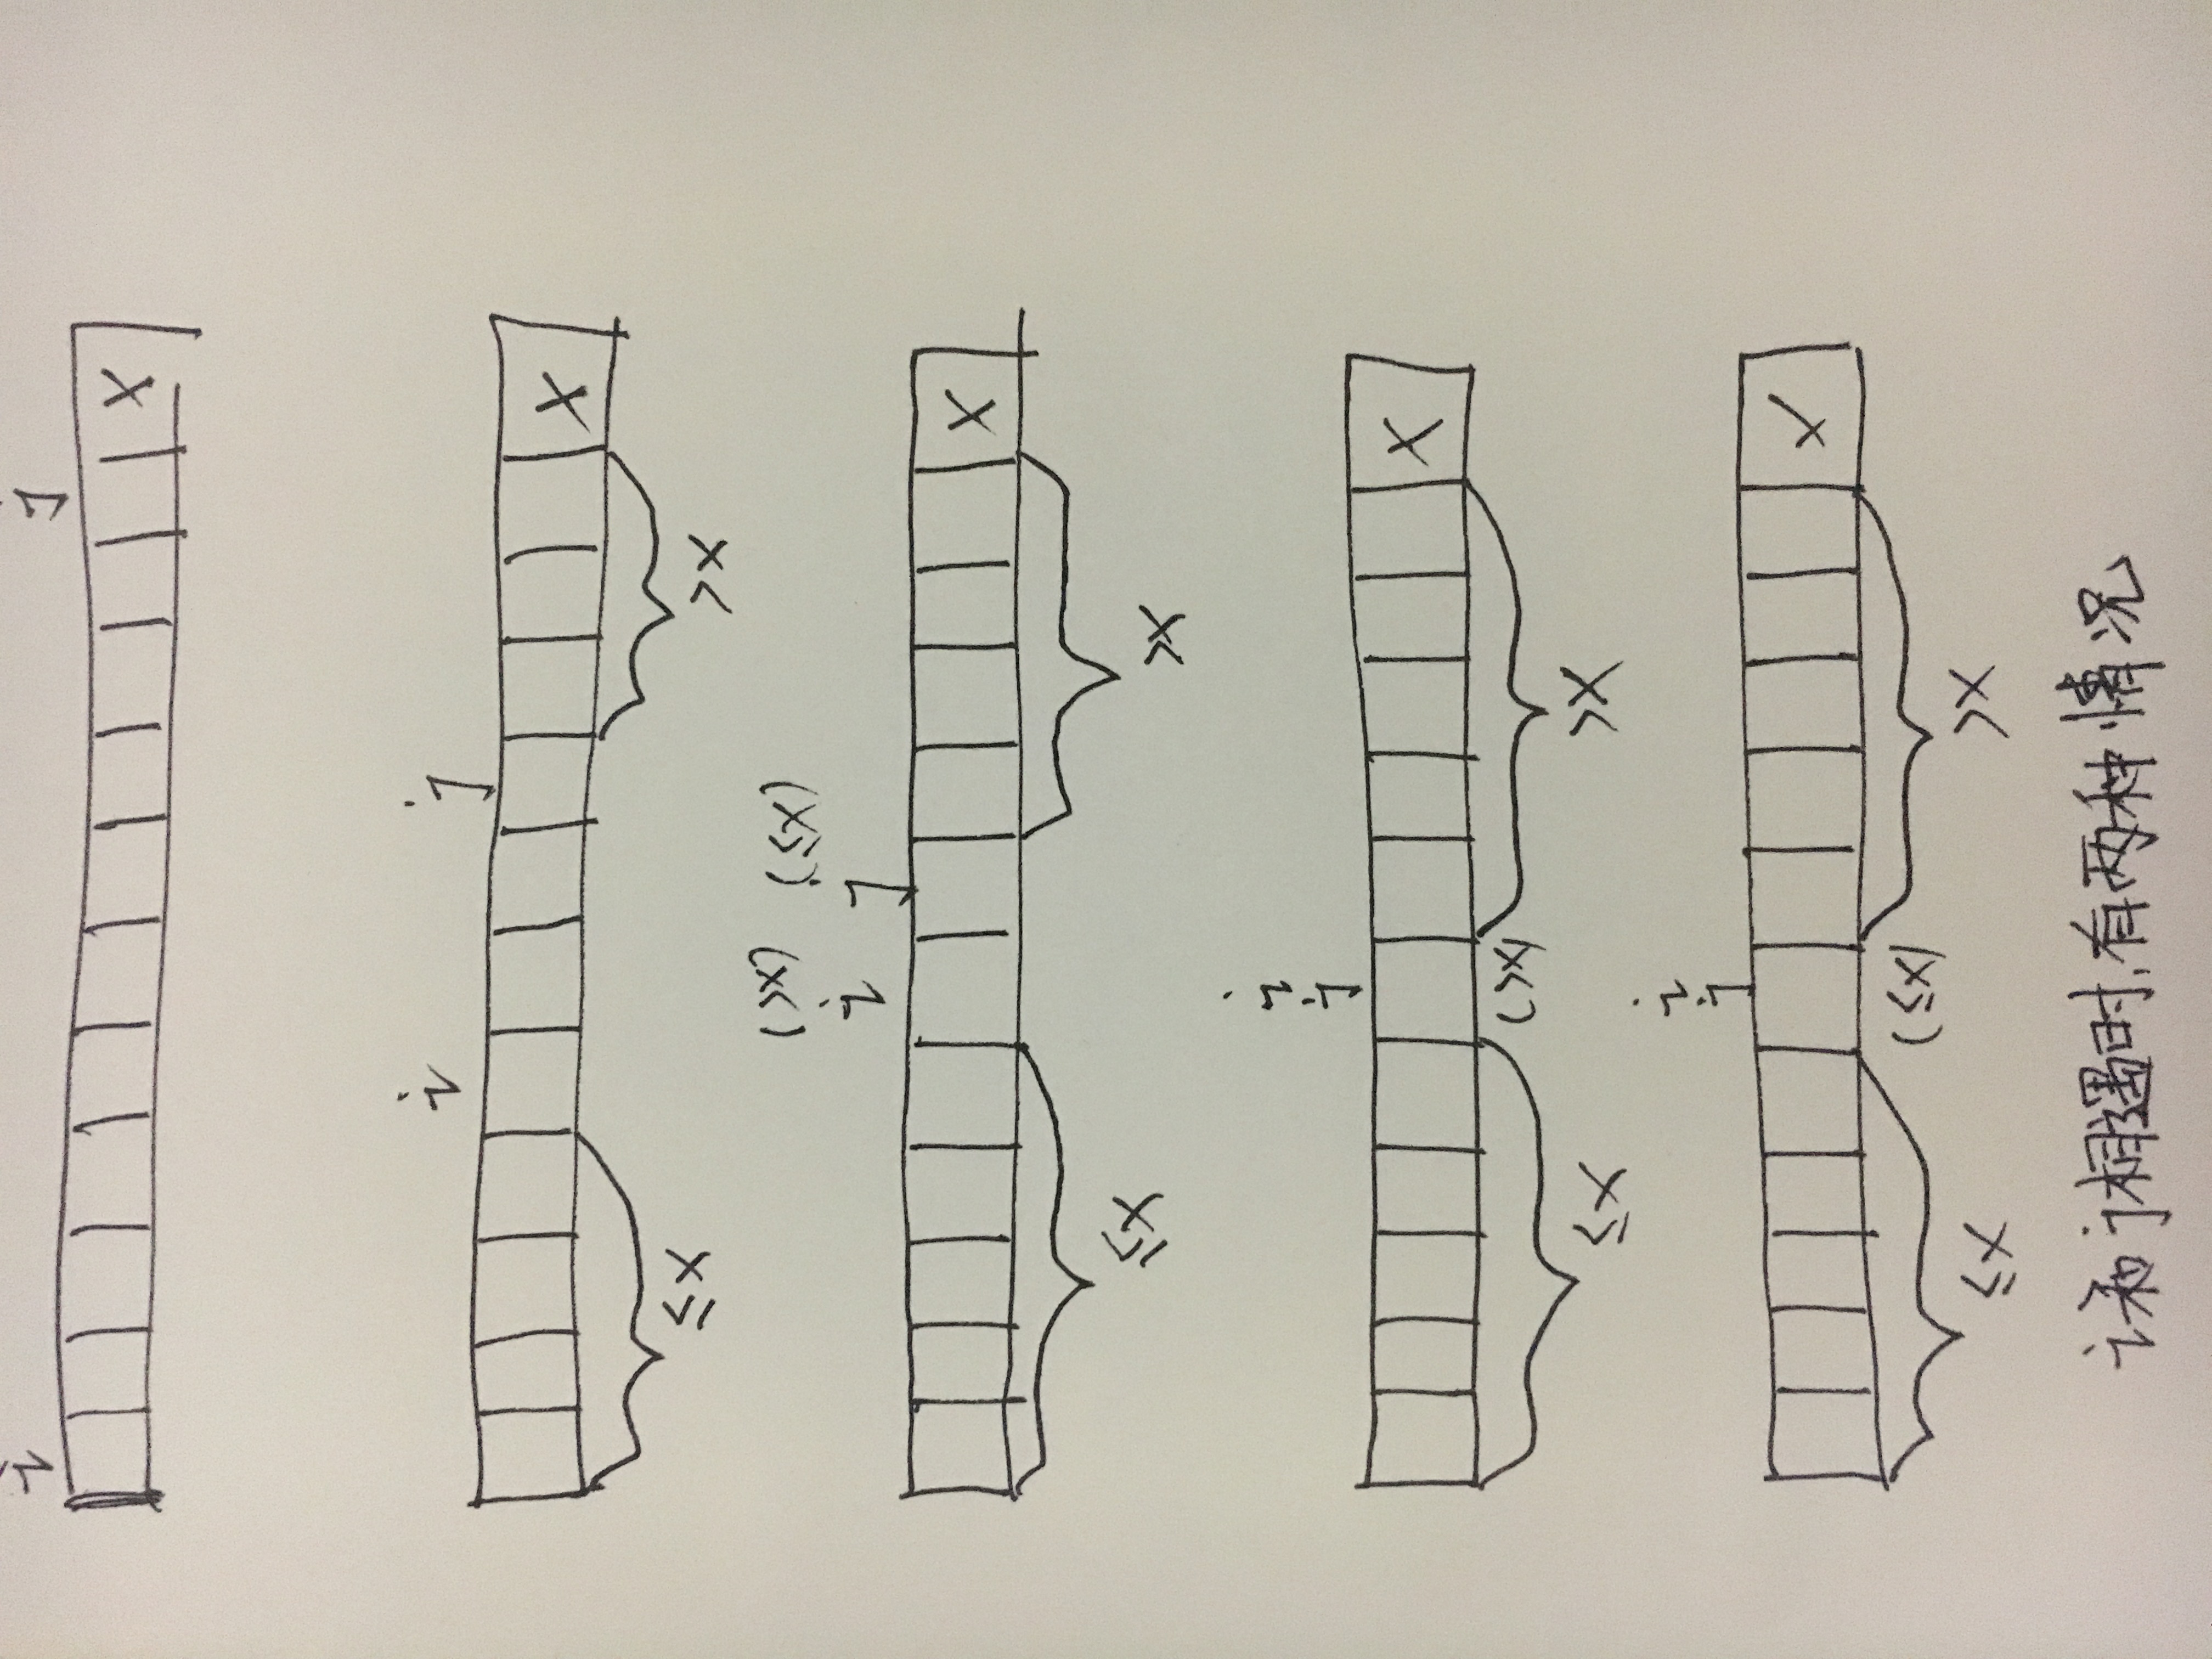 i j
X
i j
X
≤X >X
(>X) (≤X)
i j
X
≤X >X
i
j
X
(>X)
≤X >X
i
j
X
(≤X)
≤X >X
i和j相遇时,有两种情况